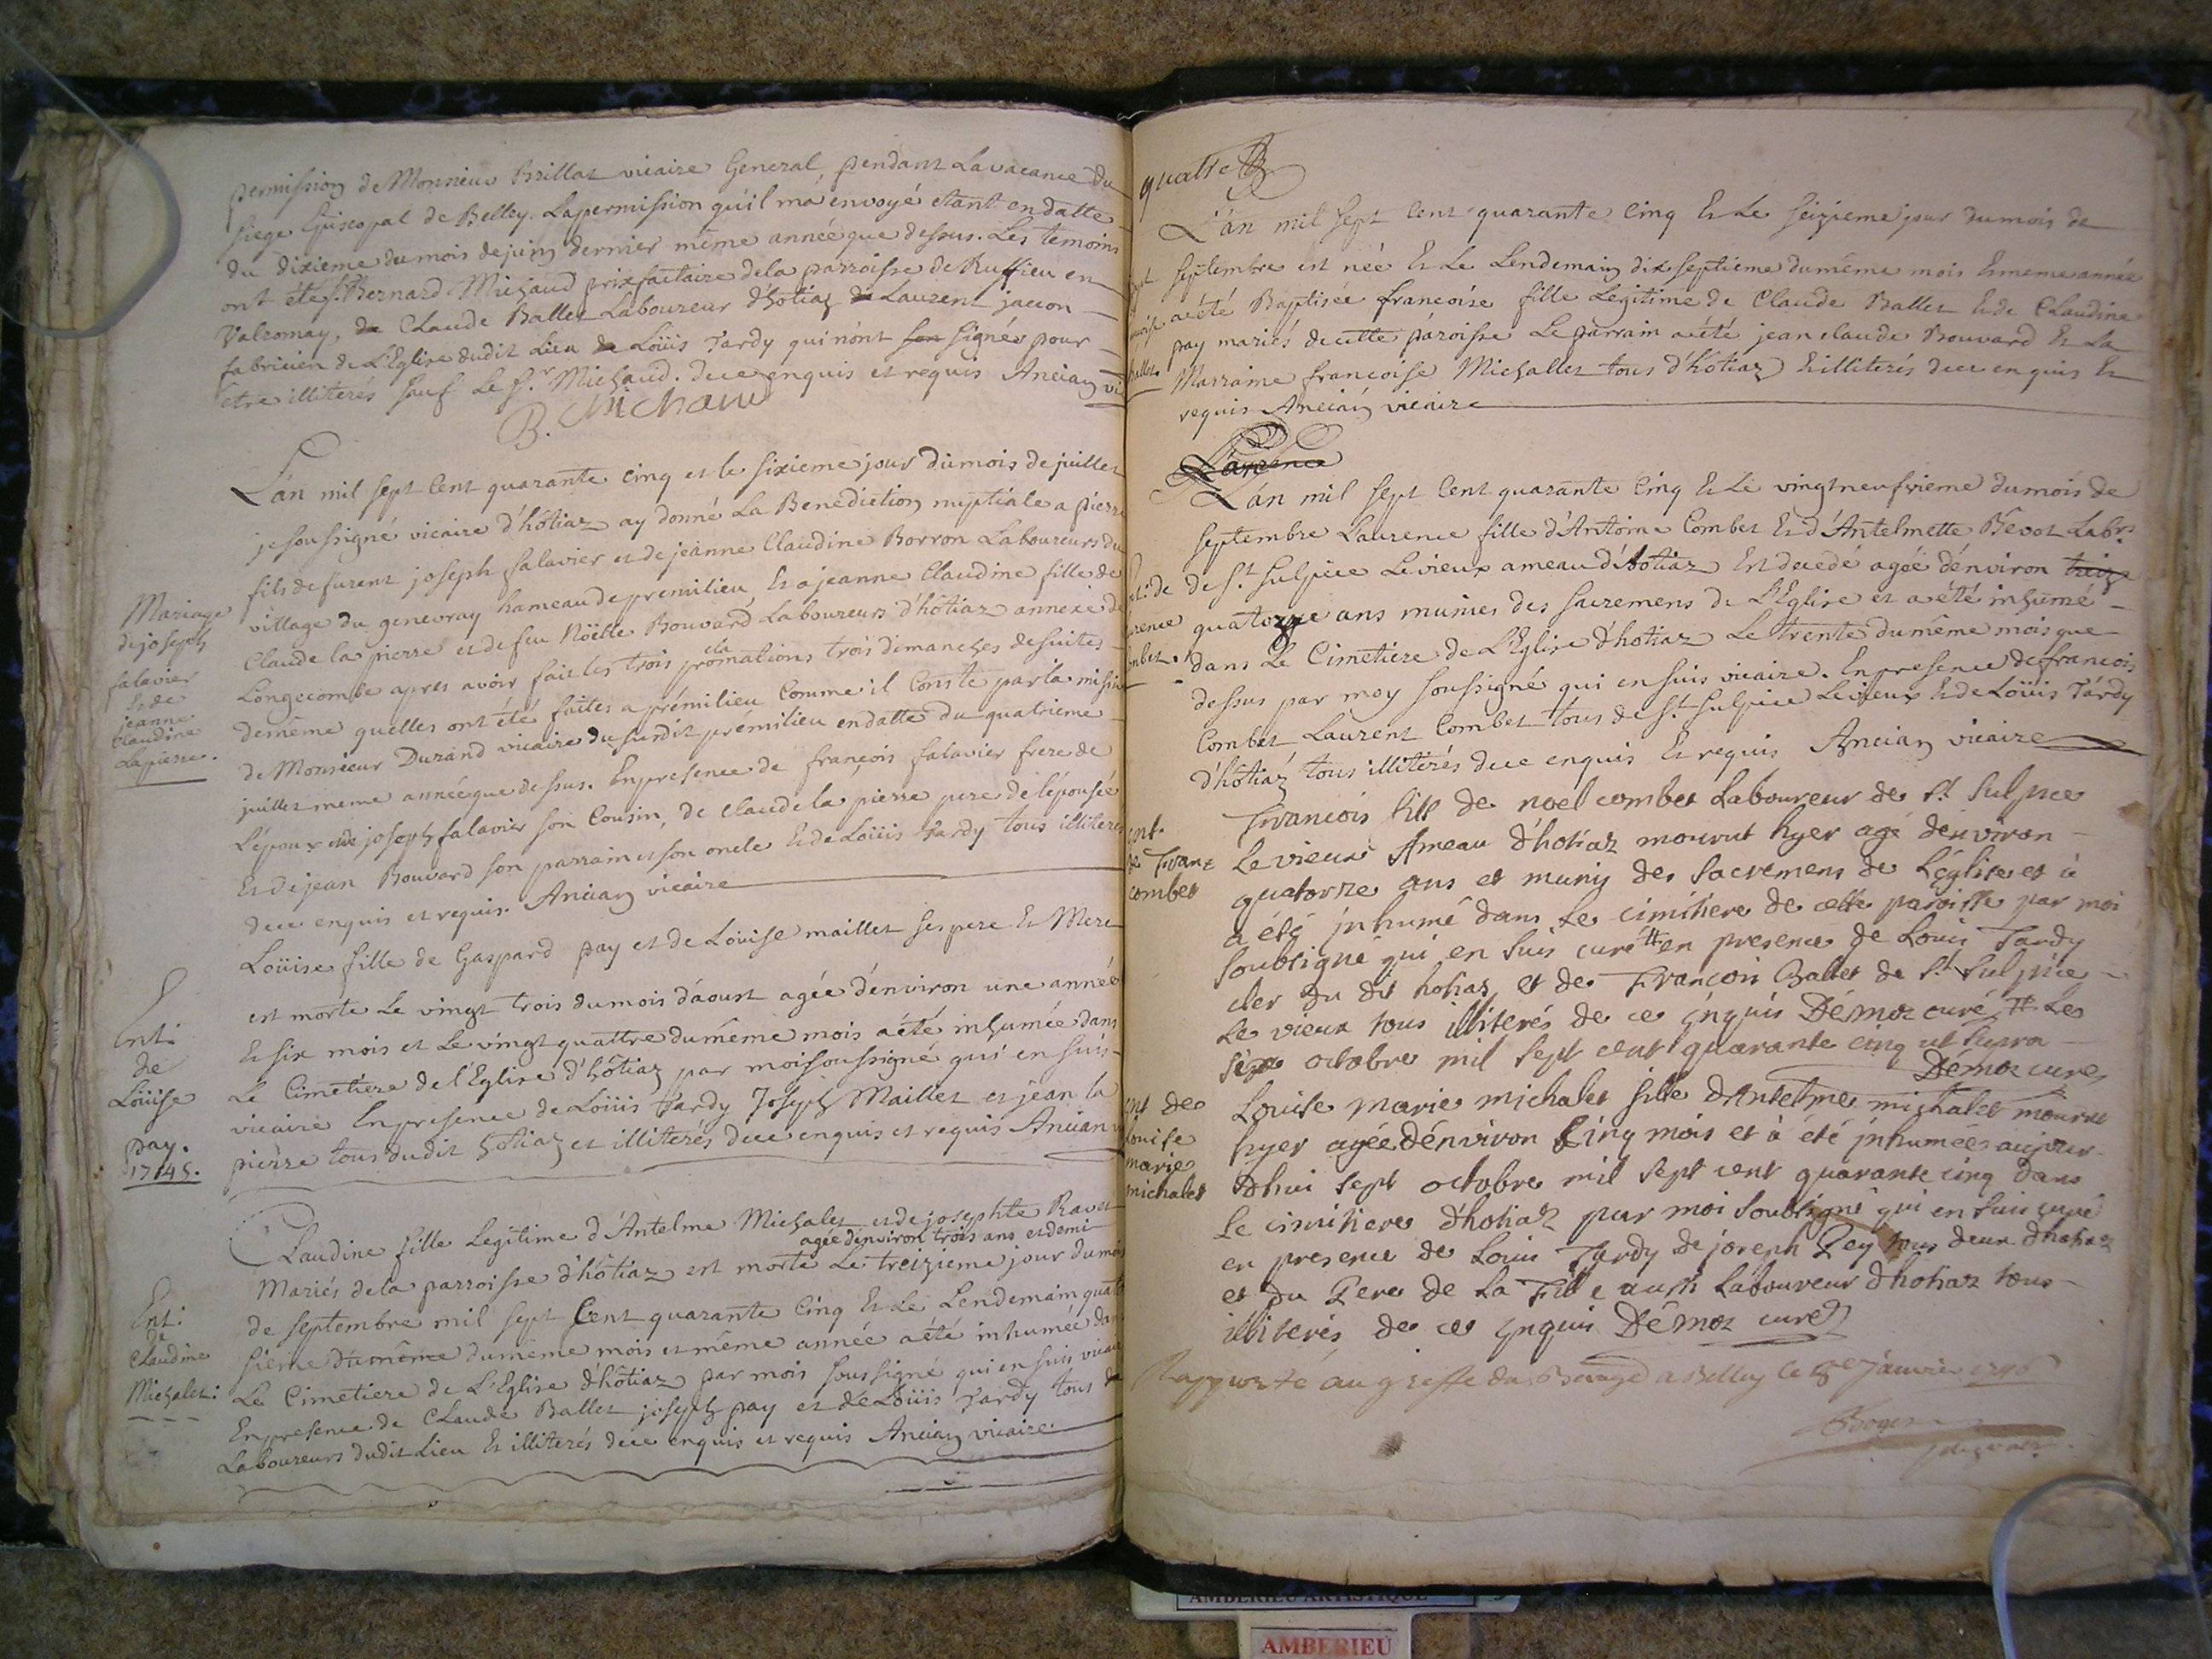 permission de Monsieur Brillat vicaire General, pendant La vacance du
siege Episcopal de Belley. La permission qu'il m'a envoyé etant en datte
du dixieme du mois de juin dernier même année que dessus. Les temoins
ont étés Sr. Bernard Michaud prixfaitaire de la parroisse de Ruffieu en
Valromay, Claude Ballet Laboureur d'hotiaz Laurent jacon
fabricien de L'Eglise dudit Lieu Loüis Tardy qui n'ont signés pour
être illiterés sauf Le Sr. Michaud. de ce enquis et requis Ancian vi
B. Michaud
L'an mil sept Cent quarante cinq et le sixieme jour du mois de juillet
je soussigné vicaire d'hôtiaz ay donné La Benediction nuptiale a pierre
fils de furent joseph falavier et de jeanne Claudine Borron Laboureurs du
village du genevray hameau de premilieu, Et a jeanne Claudine fille de
Claude la pierre et de feu Noëlle Bouvard Laboureurs d'hôtiaz annexe de
Longecombe apres avoir fait les trois proclamations trois dimanches de suites
demême quelles ont été faites a prémilieu Comme il Conste par la missi
de Monsieur Durand vicaire du susdit prémilieu en datte du quatrieme
juillet meme année que dessus. En presence de françois falavier frere de
L'époux joseph falavier son Cousin, de claude la pierre pere de l'épousée
Et de jean Bouvard son parrain et son oncle Et de Loüis Tardy tous illiteres
de ce enquis et requis. Ancian vicaire
Mariage
de joseph
falavier
Et de
jeanne
Claudine
Lapierre.
Loüise fille de Gaspard pay et de Loüise maillet ses pere Et Mere
est morte Le vingt trois du mois d'aoust agée d'environ une année
Et six mois et Le vingt quattre du même mois a été inhumée dans
Le Cimetiere de l'Eglise d'hôtiaz par moi soussigné qui en suis
vicaire En presence de Loüis Tardy Joseph Maillet et jean la
pierre tous dudit hotiaz et illiterés de ce enquis et requis Ancian v
Ent:
de
Loüise
pay.
1745.
Claudine fille Legitime d'Antelme Michalet et de josephte Ravet
agée d'environ trois ans et demi
Mariés de la parroisse d'hôtiaz est morte Le treizieme jour du mois
de septembre mil sept Cent quarante Cinq Et Le Lendemain quator
sieme du même du même mois et même année a été inhumée dans
Le Cimetiere de L'Eglise d'hôtiaz par mois soussigné qui en suis vicaire
En presence de Claude Ballet joseph pay et de Loüis Tardy tous
Laboureurs dudit Lieu Et illiterés de ce enquis et requis Ancian vicaire
Ent:
de
Claudine
Michalet:
quatre
L'an mil sept Cent quarante Cinq Et Le seizieme jour du mois de
septembre est née Et Le Lendemain dix septieme du même mois Et meme année
a été Baptisée francoise fille Legitime de Claude Ballet Et de Claudine
pay mariés de cette paroisse Le parrain a été jean claude Bouvard Et La
Marraine françoise Michallet tous d'hôtiaz Et illiterés de ce enquis Et
requis Ancian vicaire
Laurence
L'an mil sept Cent quarante Cinq Et Le vingt neufvieme du mois de
septembre Laurence fille d'Antoine Combet Et d'Antelmette Bevot Labrs
de St Sulpice Levieux ameau d'hotiaz Est decedé agée d'environ treize
quatorze ans munies des sacremens de L'Eglise et a été inhumé
dans Le Cimetiere de L'Eglise d'hotiaz Le trente du même mois que
dessus par moy soussigné qui en suis vicaire. En presence de francois
Combet Laurent Combet tous de St Sulpice Levieux Et de Loüis Tardy
d'hôtiaz tous illiterés de ce enquis Et requis Ancian vicaire
de Franz
combet
Francois fils de noël combet Laboureur de St Sulpice
Le vieux Ameau d'hotiaz mourut hyer agé denviron
quatorze ans et muny des sacremens de L'église et à
a été inhumé dans Le cimitiere de cette paroisse par moi
soubsigné qui en suis curé # en presence de Louis Tardy
cler du dit hotiaz et de François Ballet de St Sulpice
Le vieux tous illiterés de ce enquis Démoz curé # Le
six octobre mil sept cent quarante cinq ut supra
Démoz curé
ent de
Louise
marie
michalet
Louise marie michalet fille d'Antelme michalet mourut
hyer agée dénviron Cinq mois et à été inhumée aujour
dhui sept octobre mil sept cent quarante cinq dans
Le cimitiere d'hotiaz par moi soubsigné qui en suis curé
en presence de Louis Tardy de joseph Pey tous deux dhotiaz
et du Pere de La Fille aussi Laboureur dhotiaz tous
illiterés de ce enquis Démoz curé
Rapporté au greffe du Bailliage a Belley le janvier 1746
AMBERIEU ARTISTIQUE
AMBERIEU